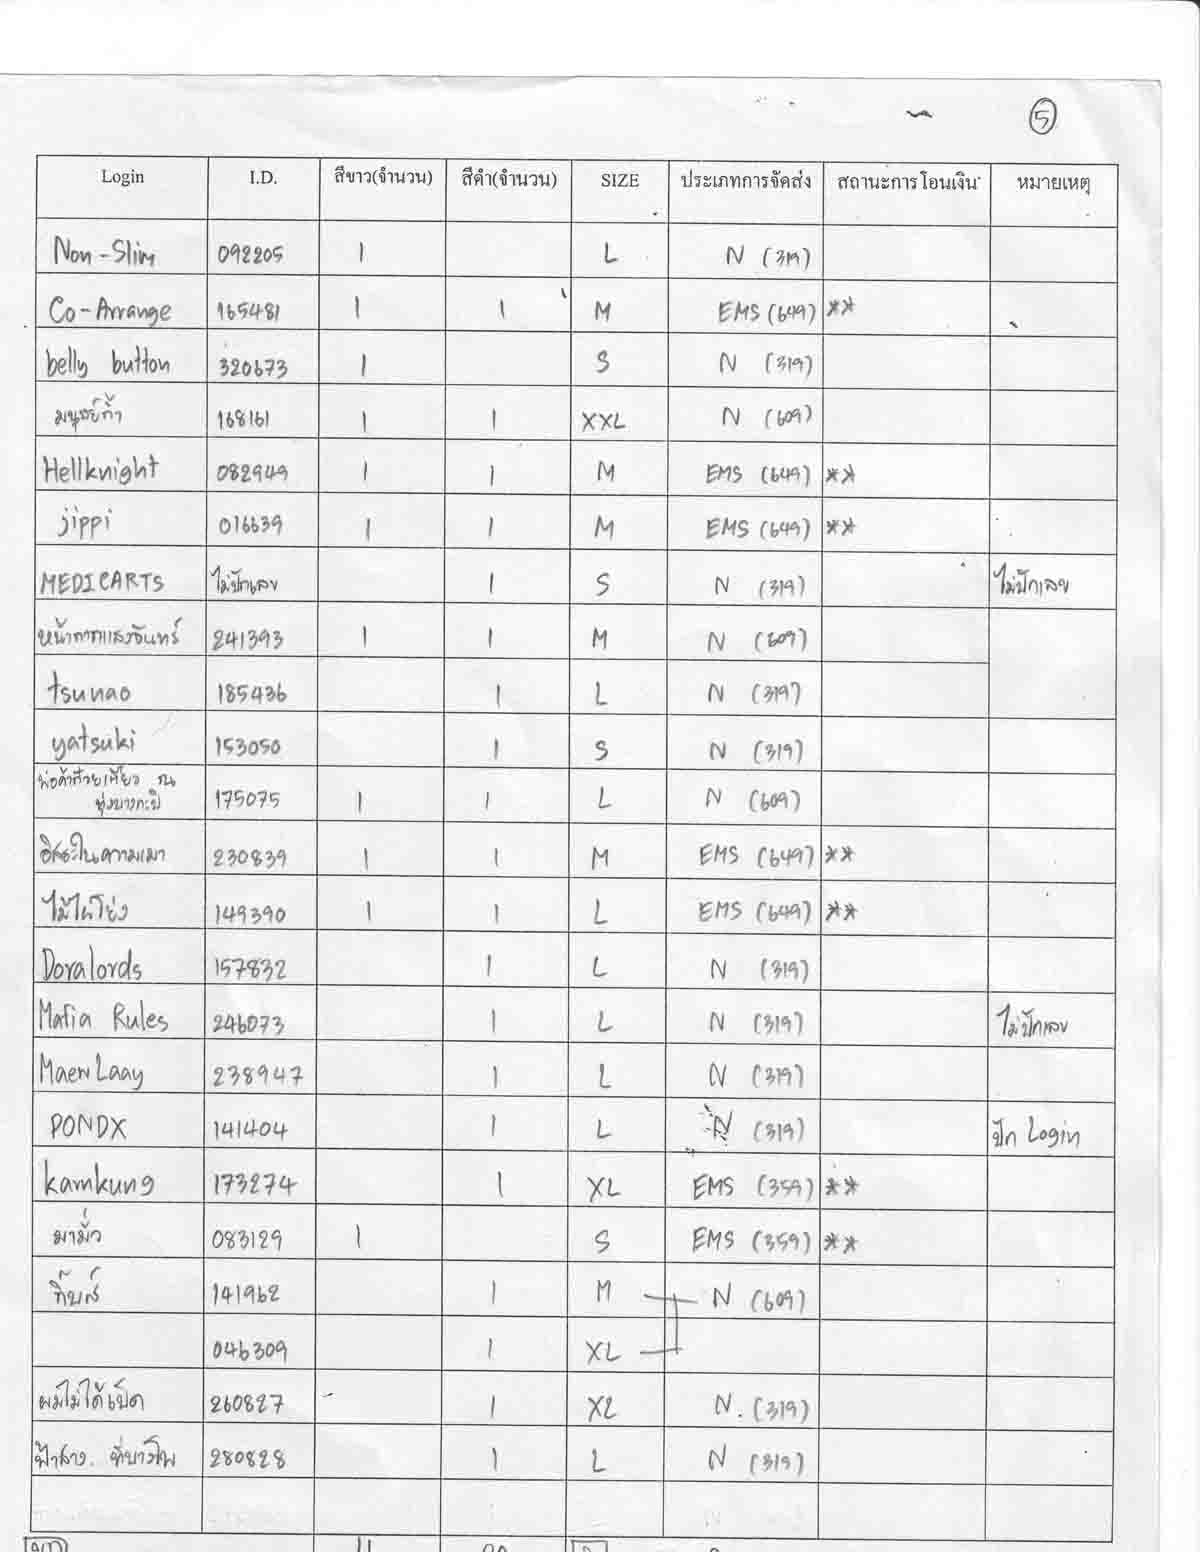 5
Login I.D. สีขาว(จำนวน) สีดำ(จำนวน) SIZE ประเภทการจัดส่ง สถานะการโอนเงิน หมายเหตุ
Non-Slim 092205 1 L N (319)
Co-Arrange 165481 1 1 M EMS (649) **
belly button 320673 1 S N (319)
มนุษย์ถ้ำ 168161 1 1 XXL N (609)
Hellknight 082949 1 1 M EMS (649) **
jippi 016639 1 1 M EMS (649) **
MEDICARTS ไม่ปักเลข 1 S N (319) ไม่ปักเลข
หน้ากากแสงจันทร์ 241393 1 1 M N (609)
tsunao 185436 1 L N (319)
yatsuki 153050 1 S N (319)
พ่อค้าก๋วยเตี๋ยว ณ
ทุ่งบางกะปิ 175075 1 1 L N (609)
อิสระในความเมา 230839 1 1 M EMS (649) **
ไม้ไผ่โย่ง 149390 1 1 L EMS (649) **
Doralords 157832 1 L N (319)
Mafia Rules 246073 1 L N (319) ไม่ปักเลข
MaewLaay 238947 1 L N (319)
PONDX 141404 1 L N (319) ปัก Login
kamkung 173274 1 XL EMS (359) **
มามั่ว 083129 1 S EMS (359) **
กิ๊บส์ 141962 1 M N (609)
046309 1 XL
ผมไม่ได้เป็ด 260827 1 XL N. (319)
ฟ้าสาง. ที่บางโพ 280828 1 L N (319)